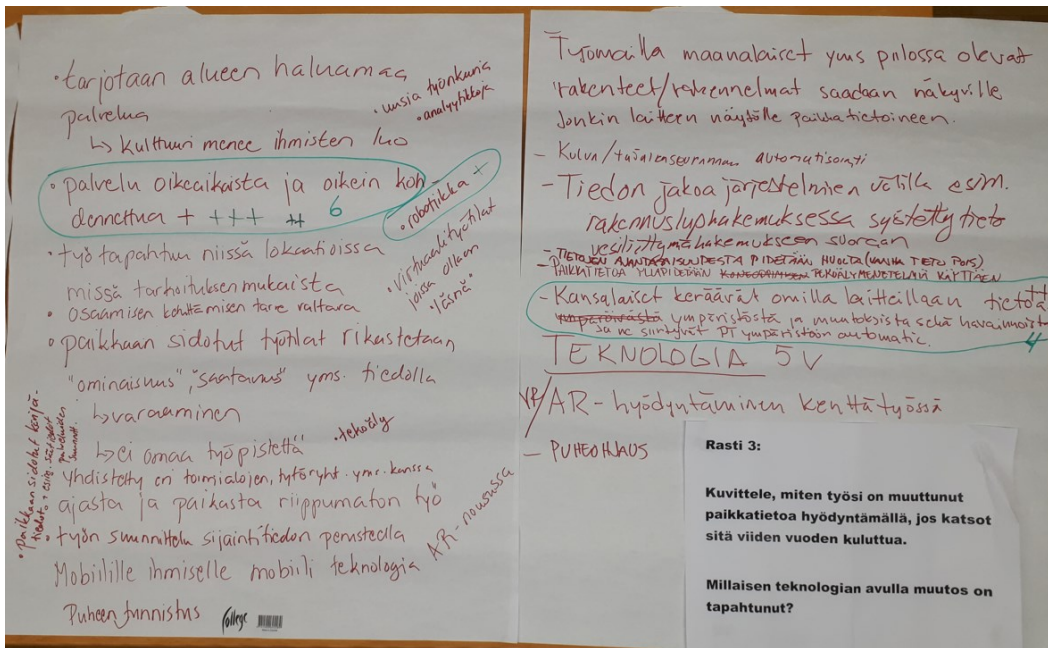 • tarjotaan alueen haluamaa
palvelua
↳ kulttuuri menee ihmisten luo
• uusia työnkuvia
• analyytikkoja
• palvelu oikeaikaista ja oikein koh-
dennettua + +++ ++ 6
• robotiikka +
• työ tapahtuu niissä lokaatioissa
missä tarkoituksenmukaista
• virtuaalityötilat
joissa ollaan
"läsnä"
• osaamisen kehittämisen tarve valtava
• paikkaan sidotut työtilat rikastetaan
"ominaisuus", "saatavuus" yms. tiedolla
↳ varaaminen
↳ ei omaa työpistettä
• tekoäly
yhdistetty eri toimialojen, työryht. yms. kanssa
ajasta ja paikasta riippumaton työ
• Paikkaan sidotut
• työn suunnittelu sijaintitiedon perusteella
AR-nousussa
Mobiilille ihmiselle mobiili teknologia
Puheen tunnistus
College
Työmailla maanalaiset yms piilossa olevat
rakenteet/rakennelmat saadaan näkyville
jonkin laitteen näytölle paikkatietoineen.
- Kulun/työajanseurannan automatisointi
- Tiedon jakoa järjestelmien välillä esim.
rakennuslupahakemuksessa syötetty tieto
vesiliittymähakemukseen suoraan
- TIETOJEN AJANTASAISUUDESTA PIDETÄÄN HUOLTA (VANHA TIETO POIS)
PAIKKATIETOA YLLÄPIDETÄÄN TEKOÄLYMENETELMIÄ KÄYTTÄEN
- Kansalaiset keräävät omilla laitteillaan tietoa ++
ympäröivästä ympäristöstä ja muutoksista sekä havainnoista
ja ne siirtyvät PT ympäristöön automatic. 4
TEKNOLOGIA 5V
VR/AR - hyödyntäminen kenttätyössä
- PUHEOHJAUS
Rasti 3:
Kuvittele, miten työsi on muuttunut
paikkatietoa hyödyntämällä, jos katsot
sitä viiden vuoden kuluttua.
Millaisen teknologian avulla muutos on
tapahtunut?